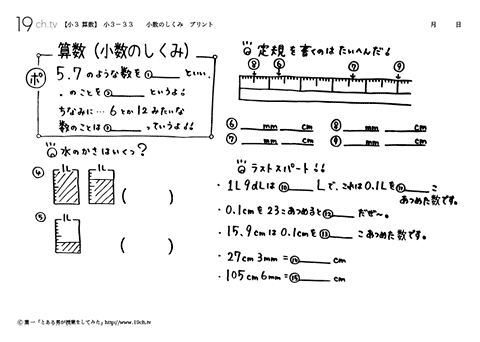 19 ch.tv 【小3 算数】 小3-33 小数のしくみ プリント 月 日
算数(小数のしくみ)
ポ
5.7のような数を①____といい、
.のことを②____というよ♪
ちなみに… 6とか12みたいな
数のことは③____っていうよ!!
水のかさはいくつ?
④ 1L 1L ( )
⑤ 1L ( )
定規を書くのはたいへんだ!
⑧ ⑥ ⑦ ⑨
⑥____mm ____cm ⑧____mm ____cm
⑦____mm ____cm ⑨____mm ____cm
ラストスパート!!
・1L9dLは⑩____Lで、これは0.1Lを⑪____こ
あつめた数です。
・0.1cmを23こあつめると⑫____だぜ〜。
・15.9cmは0.1cmを⑬____こあつめた数です。
・27cm3mm=⑭____cm
・105cm6mm=⑮____cm
Ⓒ 葉一「とある男が授業をしてみた」http://www.19ch.tv